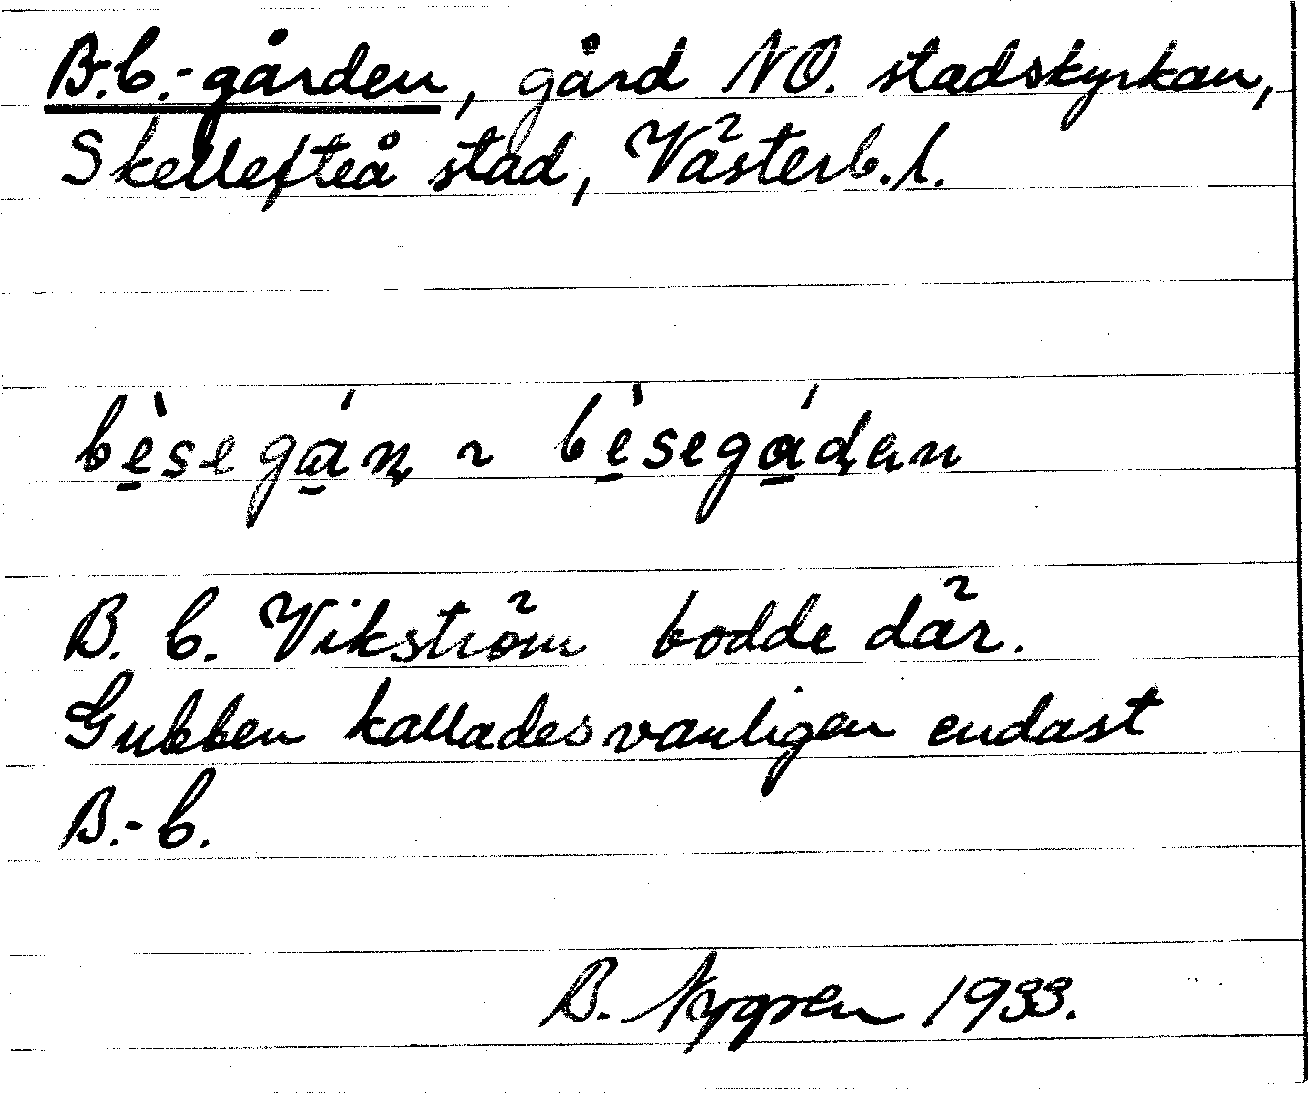 B.-C.-gården, gård NO. stadskyrkan,
Skellefteå stad, Västerb.l.
bèsegán ~ bèsegáden
B. C. Vikström bodde där.
Gubben kallades vanligen endast
B.-C.
B. Nygren 1933.